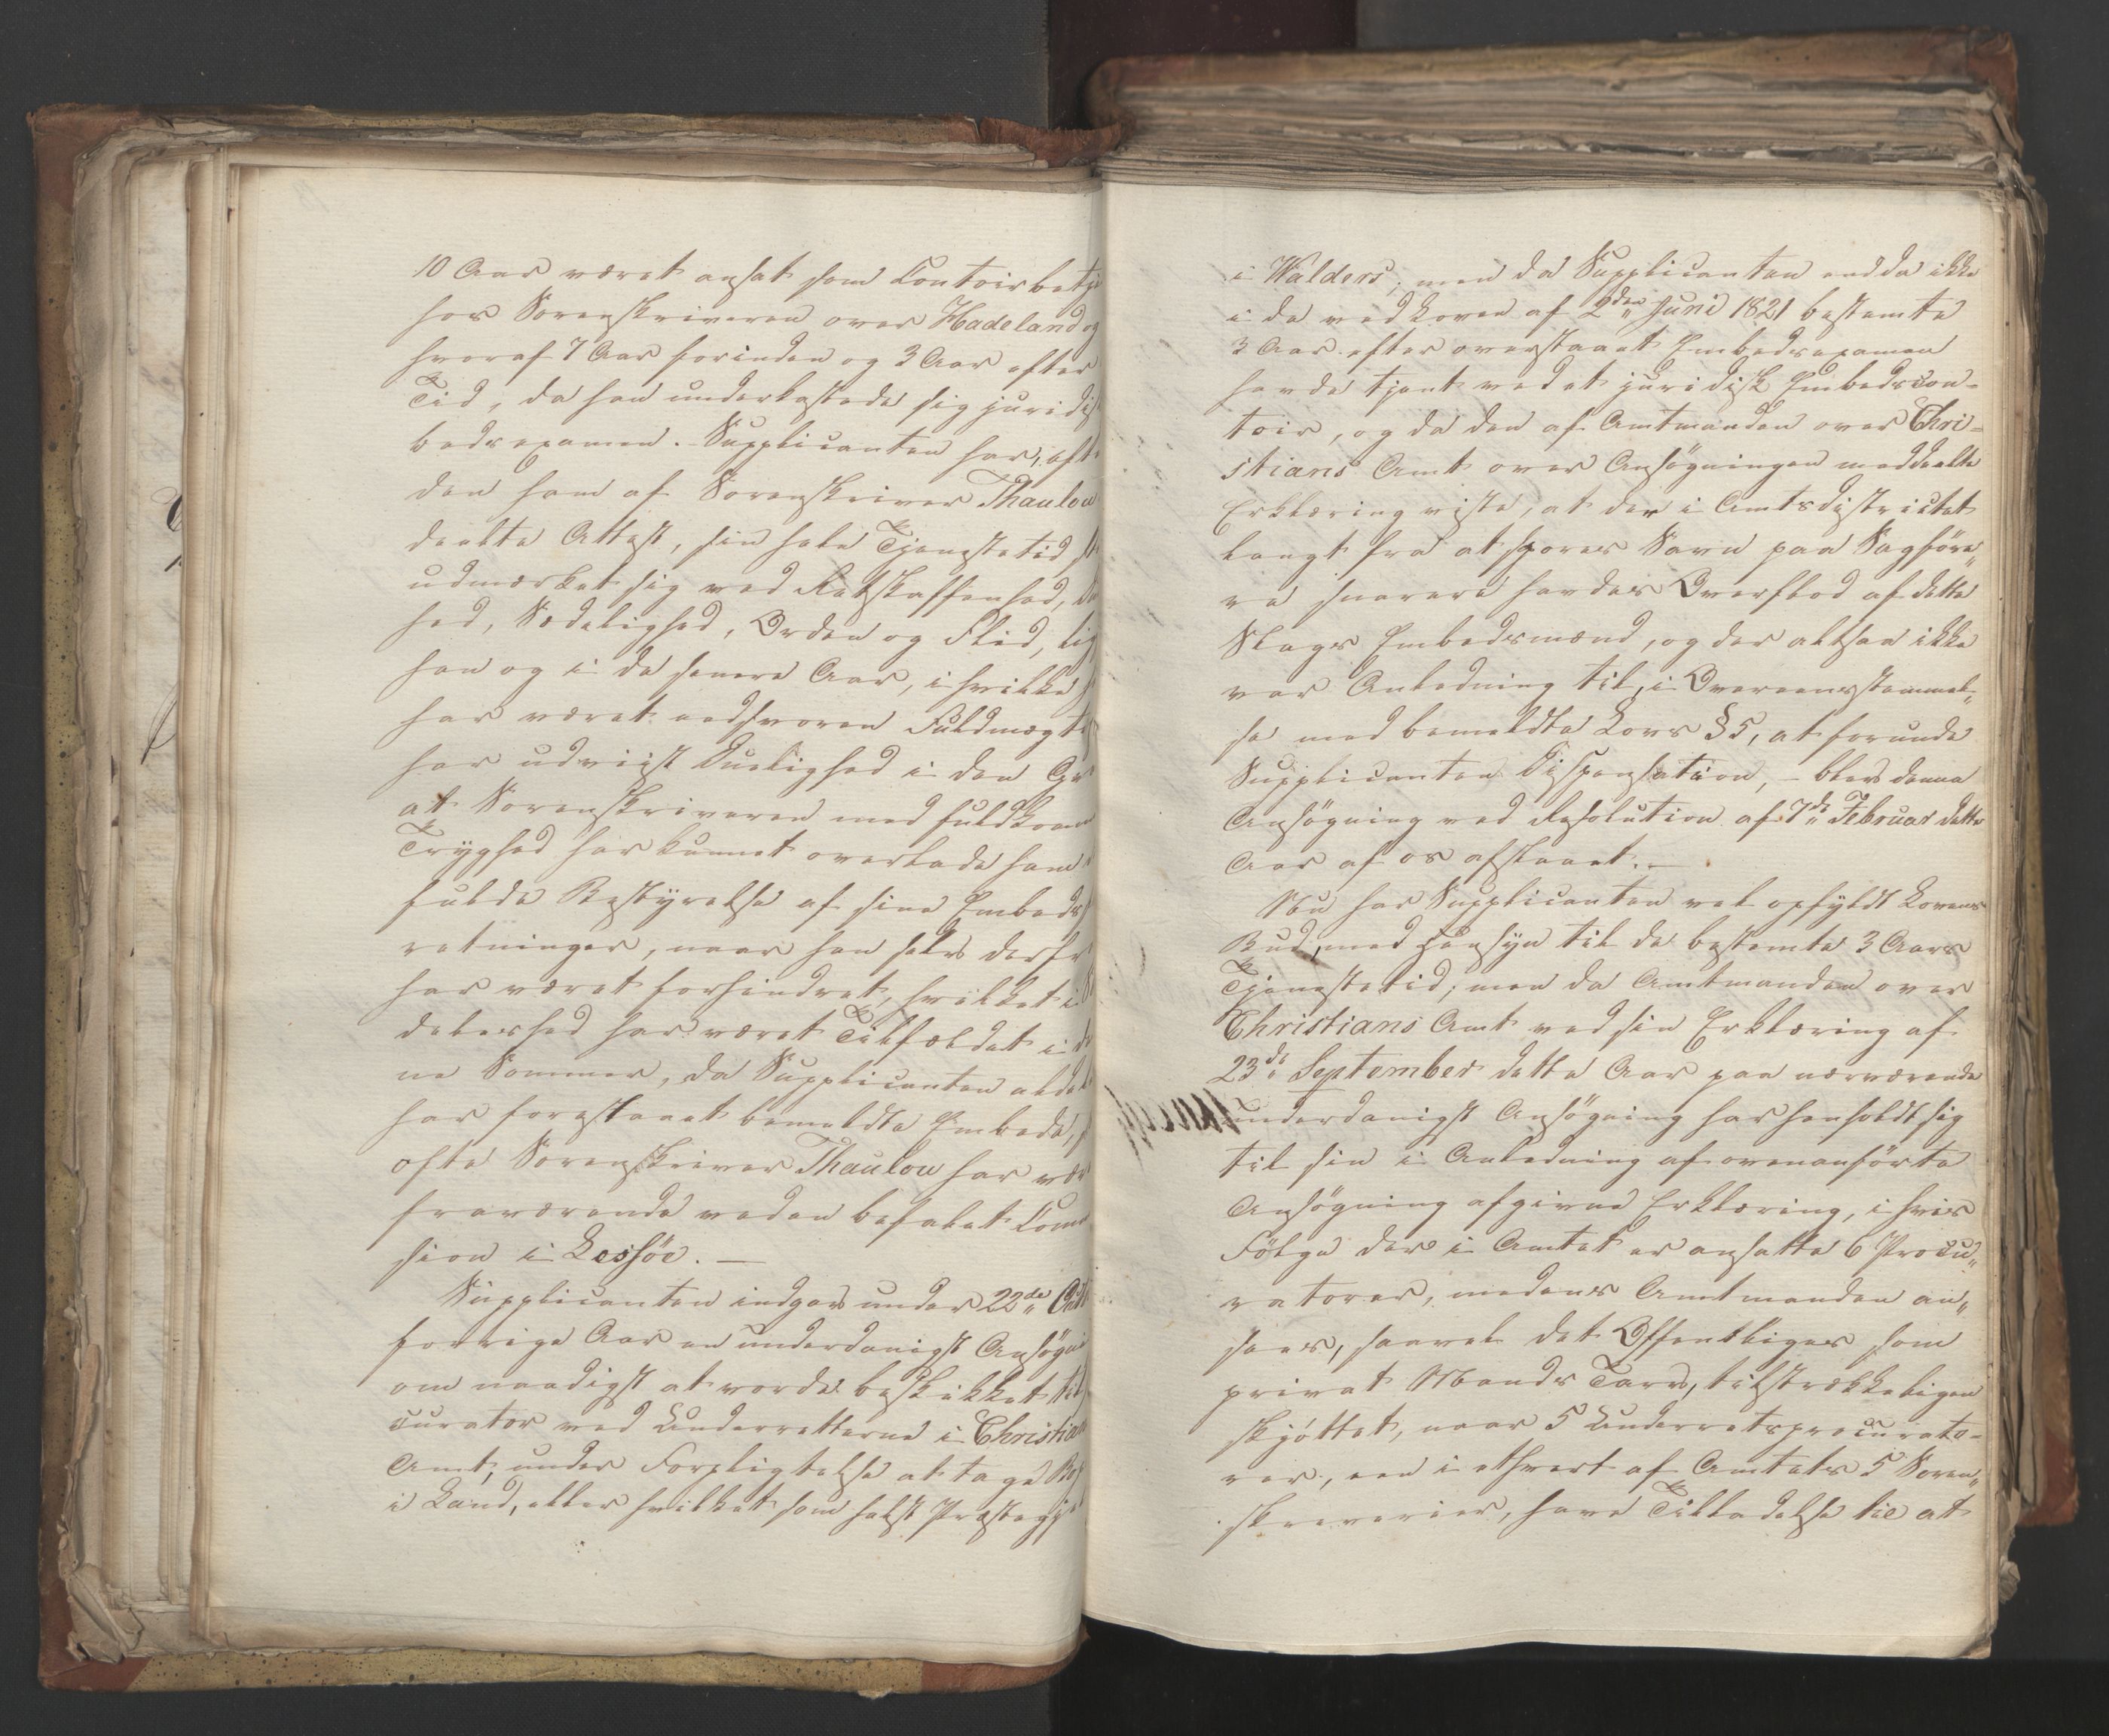 10 Aar været ansat som Contoirbetje
hos Sorenskriveren over Hadeland og
hvoraf 7 Aar forinden og 3 Aar efter
Tid, da han underkastede sig juridisk
bedsexamen. Supplicanten har, eft
den ham af Sorenskriver Thaulow
deelte Attest, sin hele Tjenestetid
udmærket sig ved Retskaffenhed,
hed, Sædelighed, Orden og Flid, lig
han og i de senere Aar, i hvilke
har været eedsvoren Fuldmægti
har udviist Duelighed i den Gr
at Sorenskriveren med fuldkom
Tryghed har kunnet overlade ham
fulde Bestyrelse af sine Embeds
retninger, naar han selv derfr
har været forhindret, hvilket i
deleshed har været Tilfældet i
ne Sommer, da Supplicanten alde
har forestaaet bemeldte Embede,
ofte Sorenskriver Thaulow har vær
fraværende ved en befalet Com
sion i Lessöe. —
Supplicanten indgav under 22de Octb
forrige Aar en underdanigst Ansögni
om naadigst at vorde beskikket til
curator ved Underretterne i Christian
Amt, under Forpligtelse at tage Bop
i Land, eller hvilket som helst Præstegje
i Walders; men da Supplicanten endda ikke
i de ved Loven af 2den Juni 1821 bestemte
3 Aar efter overstaaet Embedsexamen
havde tjent ved et juridisk Embedscon-
toir, og da den af Amtmanden over Chri-
stians Amt over Ansögningen meddeelte
Erklæring viste, at der i Amtsdistrictet
langt fra at spores Savn paa Sagföre„
re snarere havdes Overflod af dette
Slags Embedsmænd, og der altsaa ikke
var Anledning til, i Overeensstemmel„
se med bemeldte Lovs § 5, at forunde
Supplicanten Dispensation, – blev denne
Ansögning ved Resolution af 7de Februar dette
Aar af os afslaaet. —
Nu har Supplicanten vel opfyldt Lovens
Bud, med Hensyn til de bestemte 3 Aars
Tjenestetid; men da Amtmanden over
Christians Amt ved sin Erklæring af
23de September dette Aar paa nærværende
underdanigst Ansögning har henholdt sig
til sin i Anledning af ovenanförte
Ansögning afgivne Erklæring, i hvis
Fölge der i Amtet er ansatte 6 Procu„
ratorer, medens Amtmanden an„
seer, saavel det Offentliges som
privat Mands Tarv, tilstrækkeligen
skjöttet, naar 5 Underretsprocurato-
rer, een i ethvert af Amtets 5 Soren„
skreverier, have Tilladelse til at